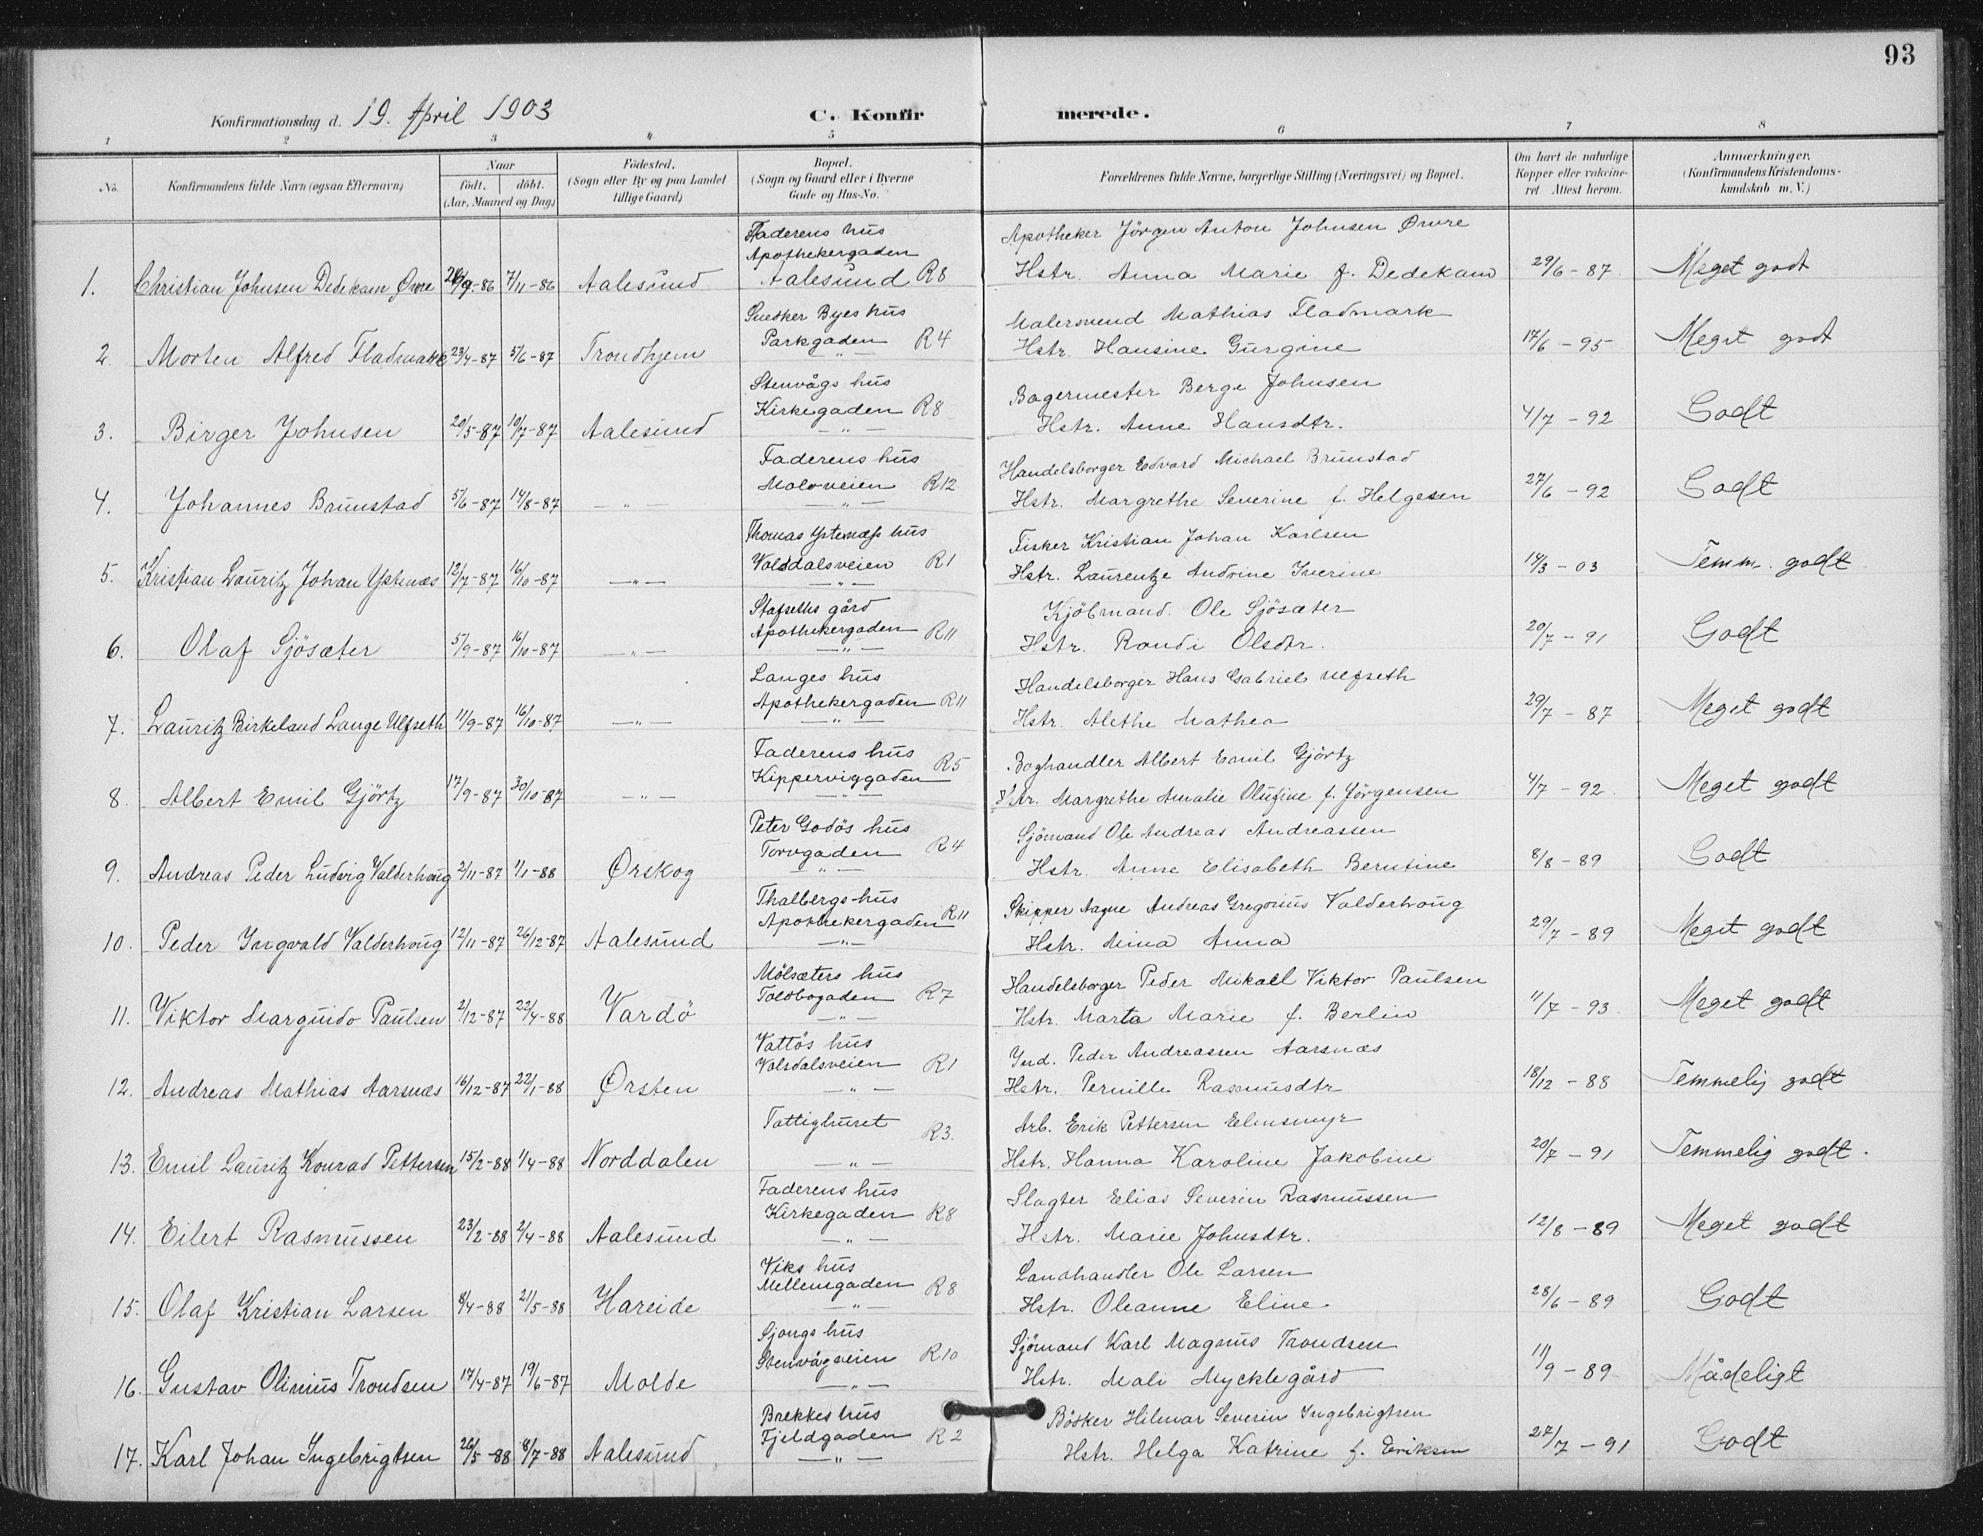 93
Konfirmationsdag d. 19. April 1903 C. Konfir merede.
1 2 3 4 5 6 7 8
No. Konfirmandens fulde Navn (ogsaa Efternavn) Naar födt. döbt. (Aar, Maaned og Dag) Födested. (Sogn eller By og paa Landet tillige Gaard) Bopæl. (Sogn og Gaard eller i Byerne Gade og Hus-No. Forældrenes fulde Navne, borgerlige Stilling (Næringsvei) og Bopæl. Om havt de naturlige Kopper eller vakcineret Attest herom. Anmærkninger. (Konfirmandens Kristendomskundskab m. V.)
Faderens hus Apotheker Jörgen Anton Johnsen Øwre
Apothekergaden
1. Christian Johnsen Dedekam Øwre /9-86 7/11-86 Aalesund Aalesund R8 Hstr. Anna Marie f. Dedekam 29/6-87 Meget godt
Snedker Byes hus Malersvend Mathias Fladmark
2. Morten Alfred Fladmark 23/4-87 5/6-87 Trondhjem Parkgaden R4 Hstr. Hansine Gurgine 17/6-95 Meget godt
— " —
Stenvågs hus Bagermester Berge Johnsen
Kirkegaden R8
3. Birger Johnsen 20/5-87 10/7-87 Aalesund — " — Hstr. Anne Hansdtr. 4/7-92 Godt
Faderens hus Handelsborger Edvard Michael Brunstad
Moloveien R12
4. Johannes Brunstad 5/6-87 14/8-87 — " — — " — Hstr. Margrethe Severine f. Helgesen 27/6-92 Godt
Thomas Ystenæss hus Fisker Kristian Johan Karlsen
Volsdalsveien R1
5. Kristian Lauritz Johan Ystenæs 12/7-87 16/10-87 — " — — " — Hstr. Laurentze Andrine Iverine 14/3-03 Temm. godt
Stafseths gård Kjöbmand. Ole Sjösæter
Apothekergaden R11
6. Olaf Sjösæter 5/9-87 16/10-87 — " — — " — Hstr. Randi Olsdtr. 20/7-91 Godt
Langes hus Handelsborger Hans Gabriel Ulfseth
Apothekergaden R11
7. Lauritz Birkeland Lange Ulfseth 11/9-87 16/10-87 — " — — " — Hstr. Alethe Mathea 29/7-87 Meget godt
Faderens hus Boghandler Albert Emil Gjörtz
Kipperviggaden R5
8. Albert Emil Gjörtz 17/9-87 30/10-87 — " — — " — Hstr. Margrethe Amalie Olufine f. Jörgensen 4/7-92. Meget godt
Peter Godös hus Sjömand Ole Andreas Andreassen
Torvgaden R4
9. Andreas Peder Ludvig Valderhoug 2/11-87 1/1-88 Ørskog — " — Hstr. Anne Elisabeth Berntine 8/8-89 Godt
Thalbergs hus Skipper Aagne Andreas Gregorius Valderhoug
Apothekergaden R11
10. Peder Ingvald Valderhoug 12/11-87 26/12-87 Aalesund — " — Hstr. Nina Anna 29/7-89 Meget godt
Mölsæters hus Handelsborger Peder Mikael Viktor Paulsen
Toldbogaden R7
11. Viktor Margindo Paulsen 2/12-87 22/4-88 Vardö — " — Hstr. Marta Marie f. Berlin 11/7-93 Meget godt
Vattös hus Ind. Peder Andreassen Aarsnæs
Volsdalsveien R1
12. Andreas Mathias Aarsnæs 16/12-87 22/1-88 Ørsten — " — Hstr. Pernille Rasmusdtr 18/12-88 Temmelig godt
Fattighuset R3. Arb. Erik Pettersen Elmsmyr
13. Emil Lauritz Konrad Pettersen 15/2-88 1/4-88 Norddalen — " — Hstr. Hanna Karoline Jakobine 20/7-91 Temmelig godt.
Faderens hus Slagter Elias Severin Rasmussen
Kirkegaden R8
14. Eilert Rasmussen 23/2-88 2/4-88 Aalesund — " — Hstr. Marie Johnsdtr. 12/8-89 Meget godt
Viks hus Landhandler Ole Larsen
Mellemgaden R8
15. Olaf Kristian Larsen 8/4-88 21/5-88 Hareide — " — Hstr. Oleanne Eline. 28/6-89 Godt
Sjongs hus Sjömand Karl Magnus Trondsen
Stenvågveien R10
16. Gustav Olinius Trondsen 17/4-87 19/6-87 Molde — " — Hstr. Mali Mycklegård 11/9-89 Mådeligt
Brekkes hus Bödker Hilmar Severin Ingebrigtsen
Fjeldgaden R2
17. Karl Johan Ingebrigtsen 26/5-88 8/7-88 Aalesund — " — Hstr. Helga Katrine f. Eriksen 27/7-91 Godt